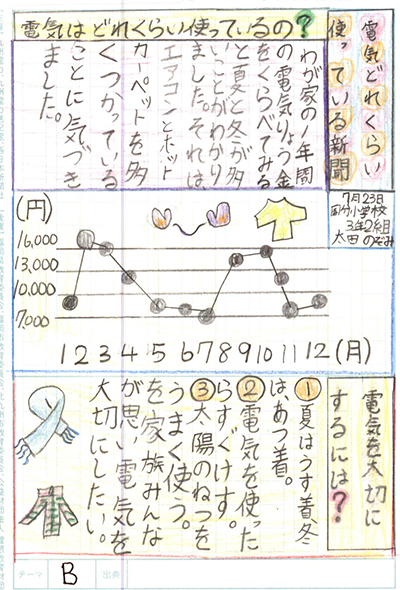 電気どれくらい
使っている新聞
7月23日
国分小学校
3年2組
太田 のぞみ
電気はどれくらい使っているの?
わが家の1年間
の電気りょう金
をくらべてみる
と夏と冬が多
いことがわかり
ました。それは
エアコンとホット
カーペットを多
くつかっている
ことに気づき
ました。
(円)
16,000
13,000
10,000
7,000
1 2 3 4 5 6 7 8 9 10 11 12 (月)
電気を大切に
するには?
①夏はうす着、冬
は、あつ着。
②電気を使った
らすぐけす。
③太陽のねつを
うまく使う。
を家族みんな
が思い電気を
大切にしたい。
テーマ B 出典